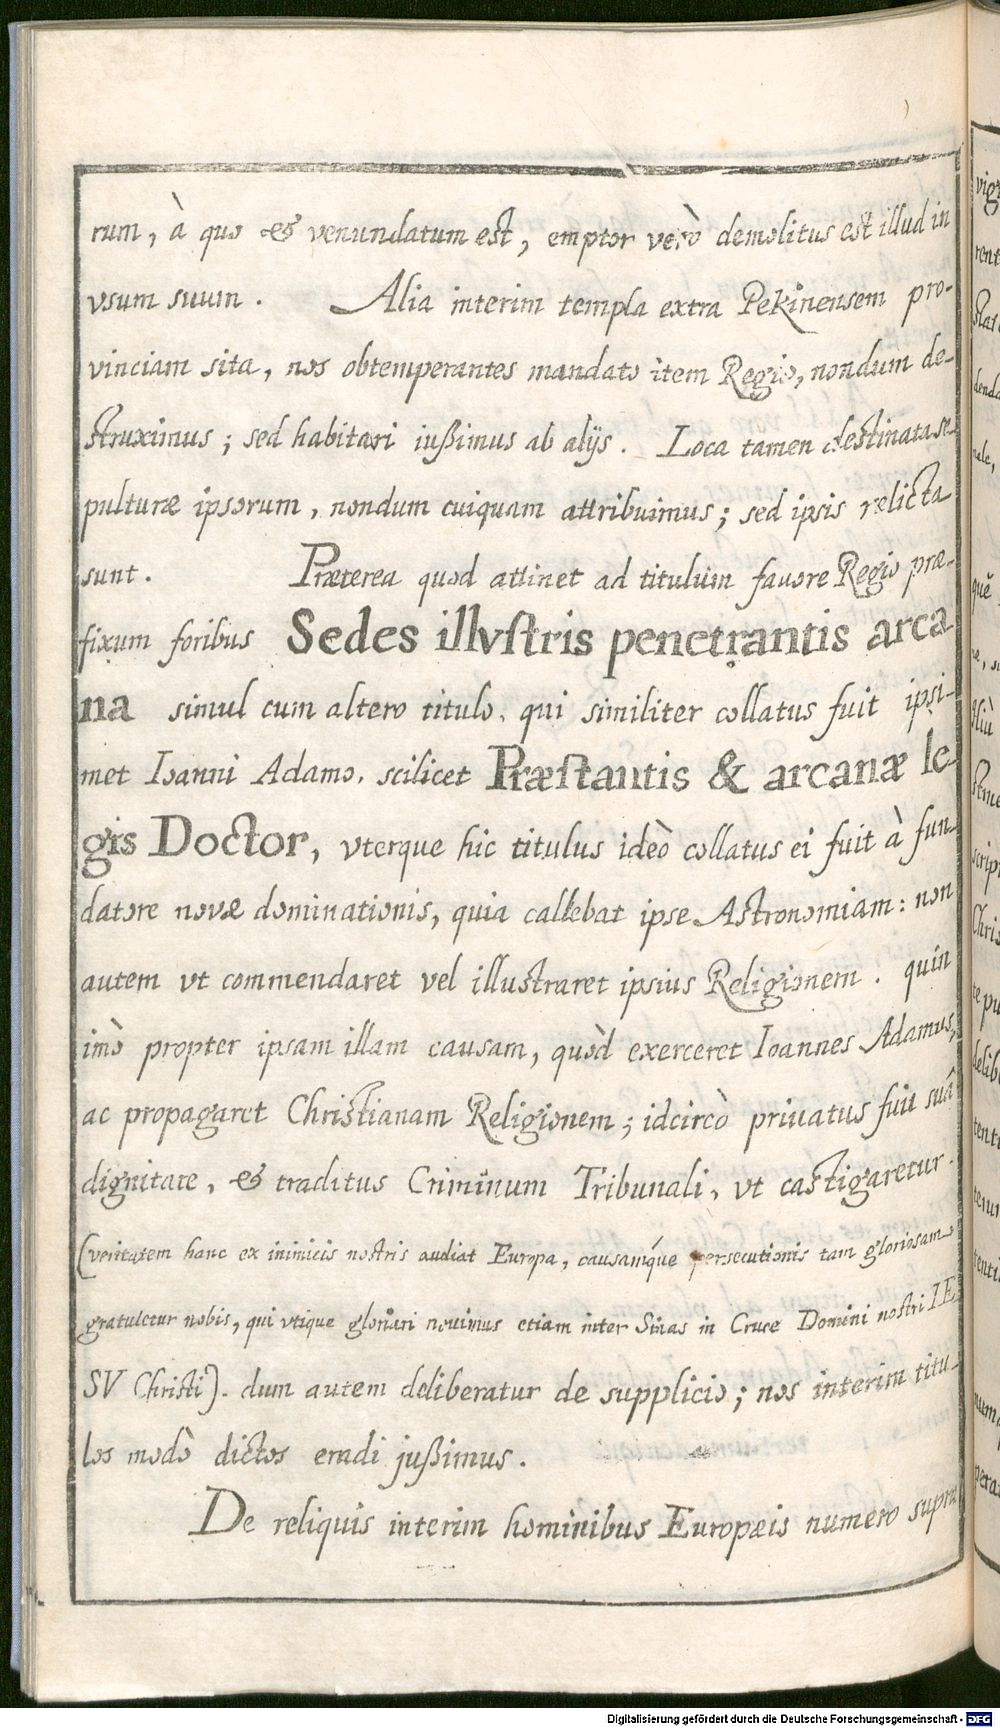 rum, à quo & venundatum est, emptor verò demolitus est illud in
vsum suum. Alia interim templa extra Pekinensem pro-
vinciam sita, nos obtemperantes mandato item Regio, nondum de-
struximus; sed habitari iußimus ab alijs. Loca tamen destinata se-
pulturæ ipsorum, nondum cuiquam attribuimus; sed ipsis relicta
sunt. Præterea quod attinet ad titulum favore Regio præ-
fixum foribus Sedes illvstris penetrantis arca
na simul cum altero titulo, qui similiter collatus fuit ipsi-
met Ioanni Adamo, scilicet Præstantis & arcanæ le-
gis Doctor, vterque hic titulus ideò collatus ei fuit à fun-
datore novæ dominationis, quia callebat ipse Astronomiam: non
autem vt commendaret vel illustraret ipsius Religionem. quin
imò propter ipsam illam causam, quòd exerceret Ioannes Adamus,
ac propagaret Christianam Religionem; idcircò priuatus fuit suâ
dignitate, & traditus Criminum Tribunali, vt castigaretur.
(veritatem hanc ex inimicis nostris audiat Europa, causamq́ue persecutionis tam gloriosam
gratuletur nobis, qui vtique gloriari novimus etiam inter Sinas in Cruce Domini nostri IE
SV Christi). dum autem deliberatur de supplicio; nos interim titu-
los modò dictos eradi jußimus.
De reliquis interim hominibus Europæis numero supra
vigi
rent
denda
quē
Chris
te pu
delib
tenti
Digitalisierung gefördert durch die Deutsche Forschungsgemeinschaft - DFG